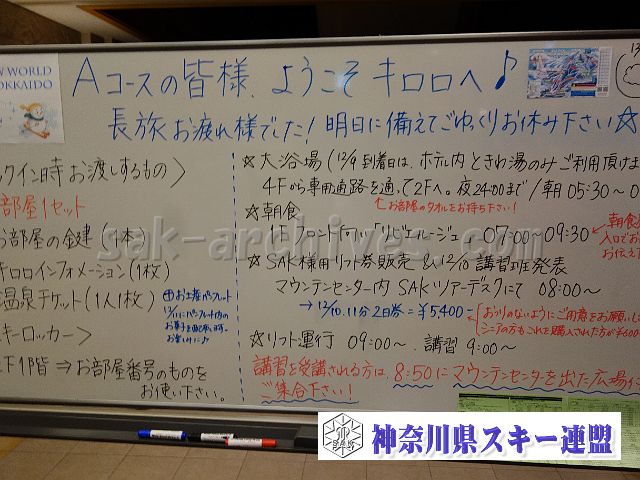 W WORLD
OKKAIDO
Aコースの皆様、ようこそ キロロへ♪
長旅お疲れ様でした！明日に備えてごゆっくりお休み下さい☆
ックイン時お渡しするもの〉
部屋1セット
お部屋の鍵（1本）
キロロインフォメーション（1枚）
温泉チケット（1人1枚）
キーロッカー〉
F1階 ⇒ お部屋番号のものを
お使い下さい。
☆大浴場（12/9 到着日は、ホテル内 ときわ湯のみご利用頂けま
4Fから専用通路を通って2Fへ。夜24:00まで/朝05:30～0
お部屋のタオルをお持ち下さい！
☆朝食
1F フロント向い『リビエルージュ』 07:00～09:30
朝食
入口でお
お伝え
☆SAK様用リフト券販売 & 12/10 講習班発表
マウンテンセンター内 SAKツアーデスクにて 08:00～
→12/10、11分 2日券=¥5400-
おつりのないようにご用意をお願い
シニアの方もこれを購入された方が¥600
☆リフト運行 09:00～ 講習 9:00～
講習を受講される方は、8:50にマウンテンセンターを出た広場
ご集合下さい！
sak-archives.com
神奈川県スキー連盟